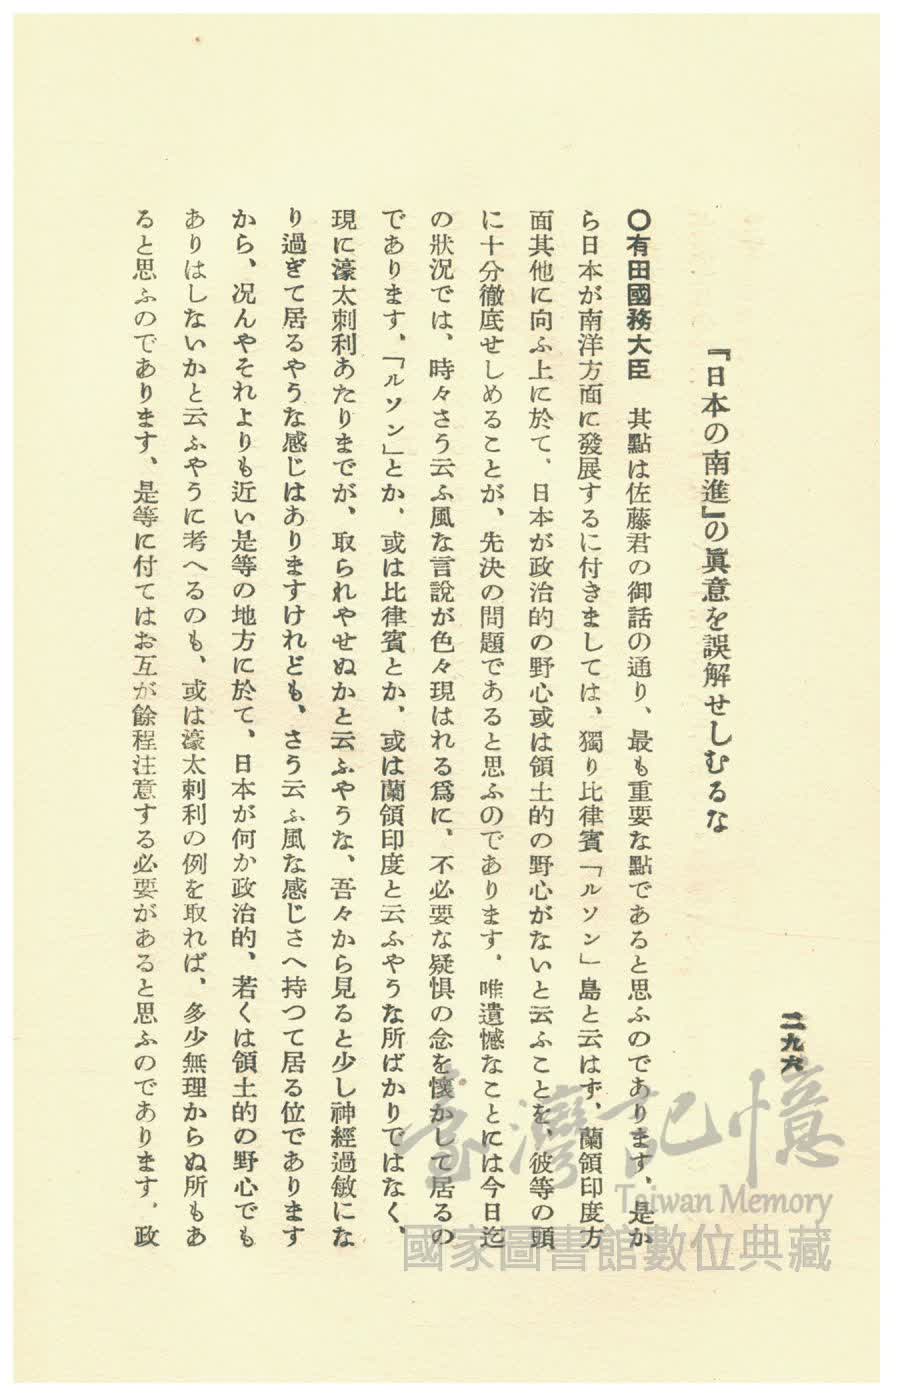 二九六
『日本の南進』の眞意を誤解せしむるな
〇有田國務大臣　其點は佐藤君の御話の通り、最も重要な點であると思ふのであります、是か
ら日本が南洋方面に發展するに付きましては、獨り比律賓「ルソン」島と云はず、蘭領印度方
面其他に向ふ上に於て、日本が政治的の野心或は領土的の野心がないと云ふことを、彼等の頭
に十分徹底せしめることが、先決の問題であると思ふのであります、唯遺憾なことには今日迄
の狀況では、時々さう云ふ風な言說が色々現はれる爲に、不必要な疑惧の念を懷かして居るの
であります、「ルソン」とか、或は比律賓とか、或は蘭領印度と云ふやうな所ばかりではなく、
現に濠太刺利あたりまでが、取られやせぬかと云ふやうな、吾々から見ると少し神經過敏にな
り過ぎて居るやうな感じはありますけれども、さう云ふ風な感じさへ持つて居る位であります
から、况んやそれよりも近い是等の地方に於て、日本が何か政治的、若くは領土的の野心でも
ありはしないかと云ふやうに考へるのも、或は濠太刺利の例を取れば、多少無理からぬ所もあ
ると思ふのであります、是等に付てはお互が餘程注意する必要があると思ふのであります、政
臺灣記憶
Taiwan Memory
國家圖書館數位典藏